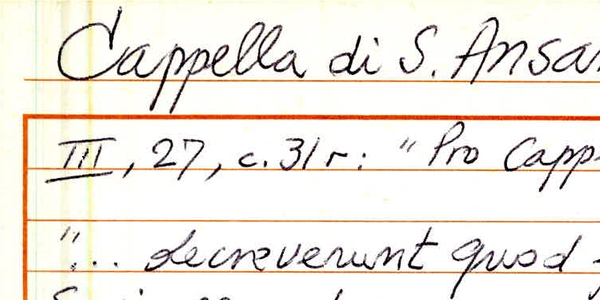 Cappella di S. Ansa
III, 27, c. 31 r: "Pro Capp
"... decreverunt quod